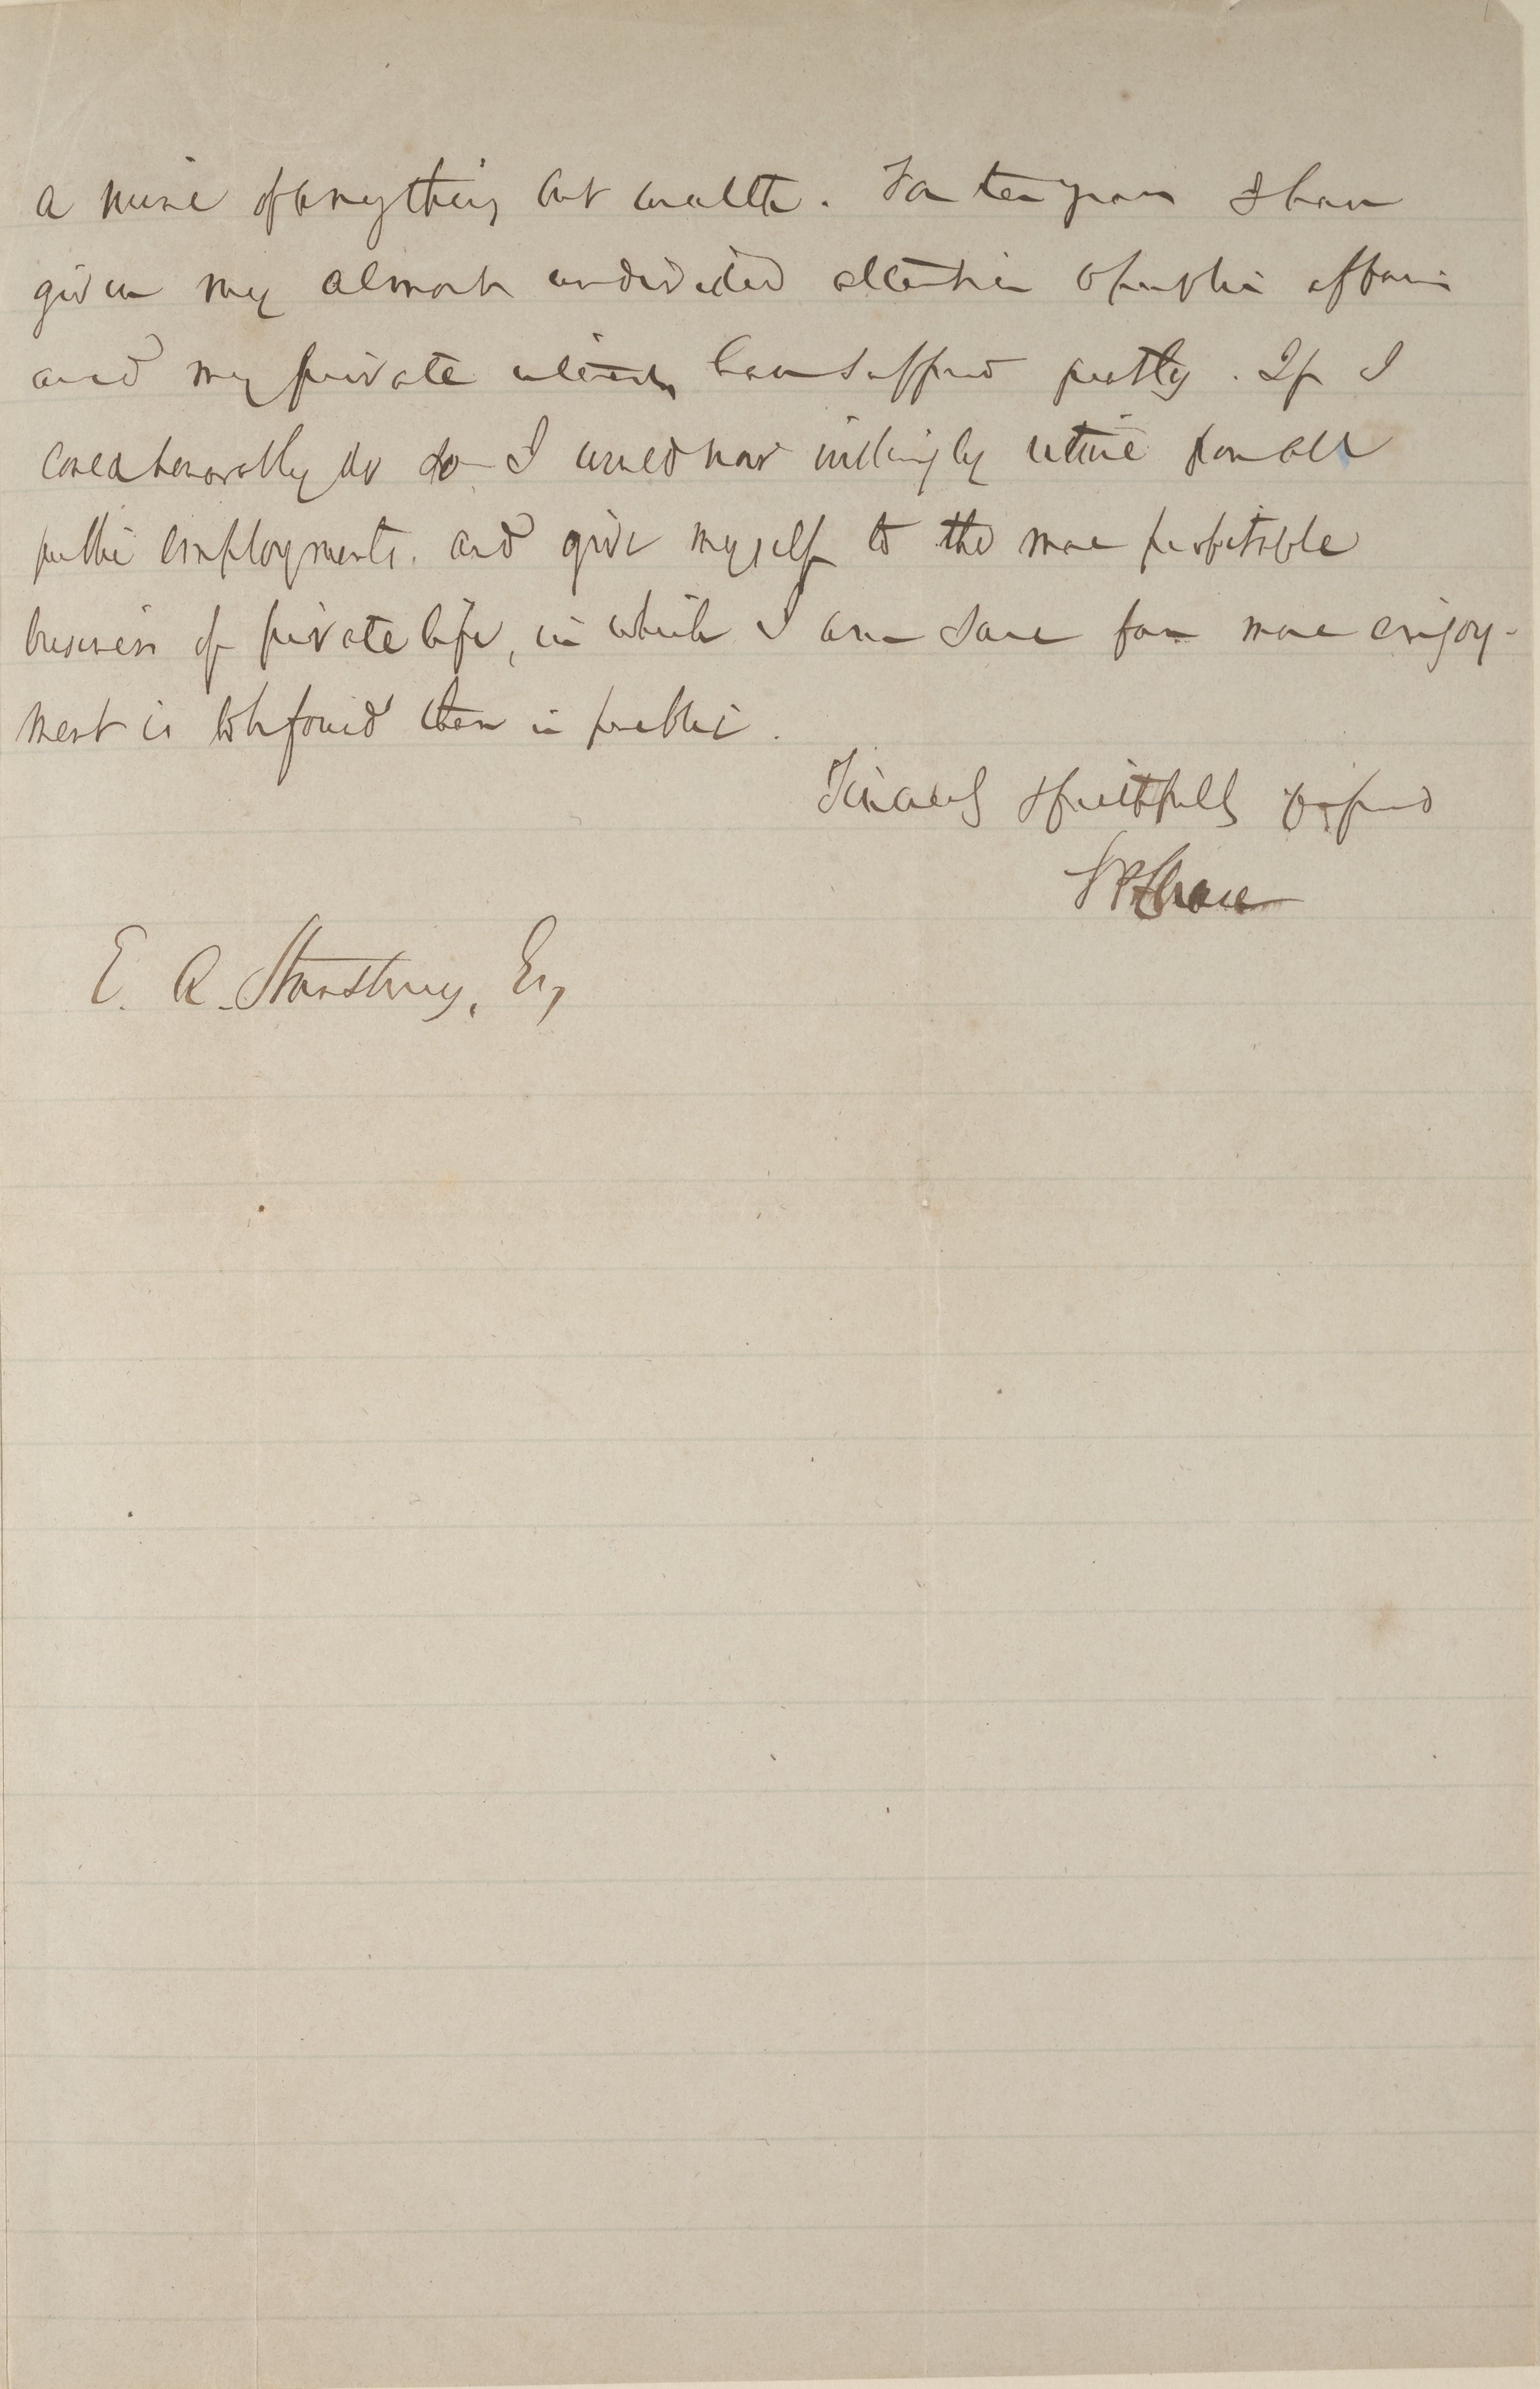 a mine of anything but wealth. For ten years I have
given my almost undivided attention to public affairs
and my private interests have suffered greatly. If I
could honorably do so I would now willingly retire from all
public employments. and give myself to the more profitable
business of private life, in which I am sure far more enjoy-
ment is to be found than in public.
Sincerely & faithfully yr friend
SPChase
E. A. Stansbury, Esq